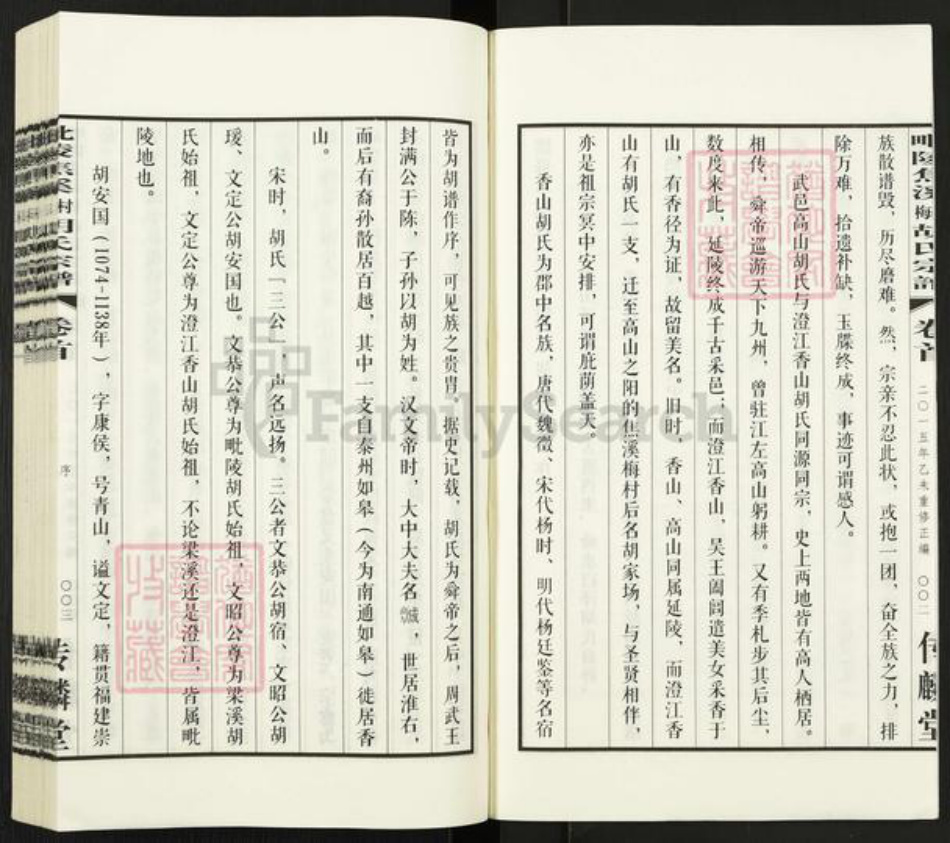 毗陵焦溪梅村胡氏宗谱
卷首
二〇一五年乙未重修正编
〇〇二
传麟堂
族散谱毁，历尽磨难。然，宗亲不忍此状，或抱一团，奋全族之力，排
除万难，拾遗补缺，玉牒终成，事迹可谓感人。
武邑高山胡氏与澄江香山胡氏同源同宗，史上两地皆有高人栖居。
相传，舜帝巡游天下九州，曾驻江左高山躬耕。又有季札步其后尘，
数度来此，延陵终成千古采邑；而澄江香山，吴王阖闾遣美女采香于
山，有香径为证，故留美名。旧时，香山、高山同属延陵，而澄江香
山有胡氏一支，迁至高山之阳的焦溪梅村后名胡家场，与圣贤相伴，
亦是祖宗冥中安排，可谓庇荫盖天。
香山胡氏为郡中名族，唐代魏徵、宋代杨时、明代杨廷鉴等名宿
皆为胡谱作序，可见族之贵胄。据史记载，胡氏为舜帝之后，周武王
封满公于陈，子孙以胡为姓。汉文帝时，大中大夫名
，世居淮右，
而后有裔孙散居百越，其中一支自泰州如皋（今为南通如皋）徙居香
山。
宋时，胡氏「三公」，声名远扬。三公者文恭公胡宿、文昭公胡
瑗、文定公胡安国也。文恭公尊为毗陵胡氏始祖，文昭公尊为梁溪胡
氏始祖，文定公尊为澄江香山胡氏始祖，不论梁溪还是澄江，皆属毗
陵地也。
胡安国（1074-1138年），字康侯，号青山，谥文定，籍贯福建崇
卷首
序
〇〇三
FamilySearch